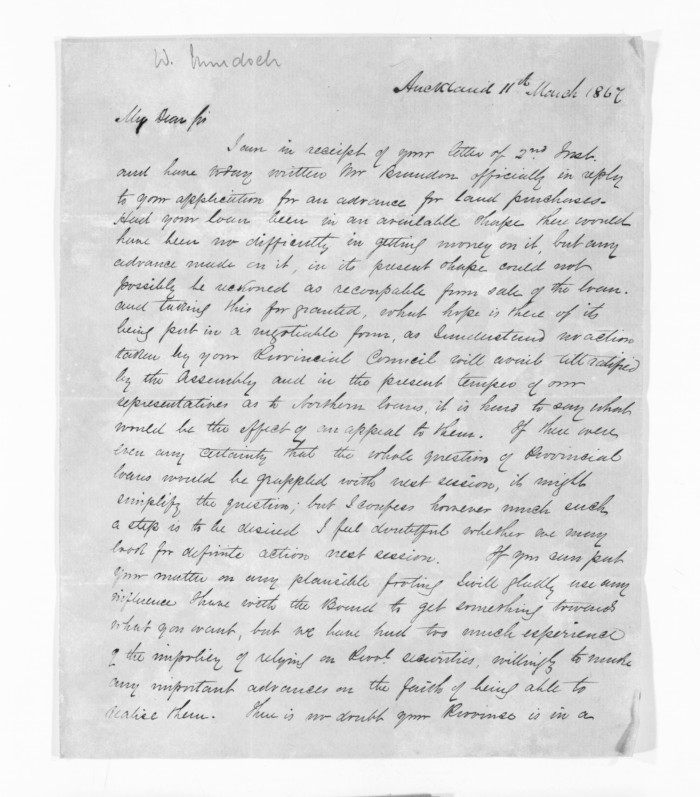 W. Murdoch
Auckland 11th March 1867
My Dear Sir
I am in receipt of your letter of 2nd Inst.
and have today written Mr Brandon officially in reply
to your application for an advance for land purchases.
Had your loan been in an available shape there would
have been no difficulty in getting money on it, but any
advance made on it, in its present shape could not
possibly be reckoned as recoupable from sale of the loan.
and taking this for granted, what hope is there of its
being put in a negotiable form, as I understand no action
taken by your Provincial Council will avail till ratified
by the Assembly and in the present temper of our
representatives as to Northern loans, it is hard to say what
would be the effect of an appeal to them. If there were
even any certainty that the whole question of Provincial
loans would be grappled with next session, it might
simplify the question; but I confess however much such
a step is to be desired I feel doubtful whether we may
look for definite action next session. If you can put
your matter on any plausible footing I will gladly use any
influence I have with the Board to get something towards
what you want, but we have had too much experience
of the impolicy of relying on Provl. securities, willingly to make
any important advances on the faith of being able to
realise them. There is no doubt your Province is in a